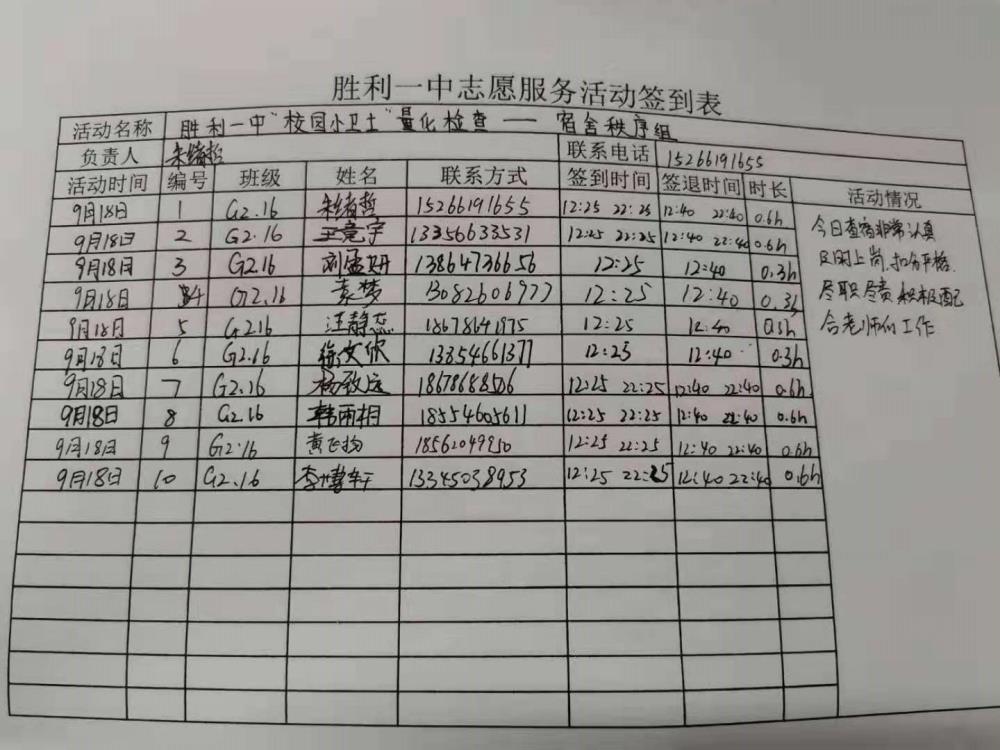 胜利一中志愿服务活动签到表
活动名称 胜利一中"校园小卫士"量化检查 —— 宿舍秩序组
负责人 朱绪哲 联系电话 15266191655
活动时间 编号 班级 姓名 联系方式 签到时间 签退时间 时长 活动情况
9月18日 1 G2.16 朱绪哲 15266191655 12:25 22:25 12:40 22:40 0.6h
9月18日 2 G2.16 王亮宇 13356633531 12:25 22:25 12:40 22:40 0.6h
9月18日 3 G2.16 刘孟妍 13864736656 12:25 12:40 0.3h
9月18日 4 G2.16 袁梦 13082606977 12:25 12:40 0.3h
9月18日 5 G2.16 汪静 18678641975 12:25 12:40
9月18日 6 G2.16 徐文欣 13354661377 12:25 12:40 0.3h
9月18日 7 G2.16 杨致远 18678688506 12:25 22:25 12:40 22:40 0.6h
9月18日 8 G2.16 韩雨桐 18554605611 12:25 22:25 12:40 22:40 0.6h
9月18日 9 G2.16 黄飞扬 18562049950 12:25 22:25 12:40 22:40 0.6h
9月18日 10 G2.16 李博轩 13345038953 12:25 22:25 12:40 22:40 0.6h
今日查宿非常认真
及时上岗,扣分严格,
尽职尽责,积极配
合老师的工作